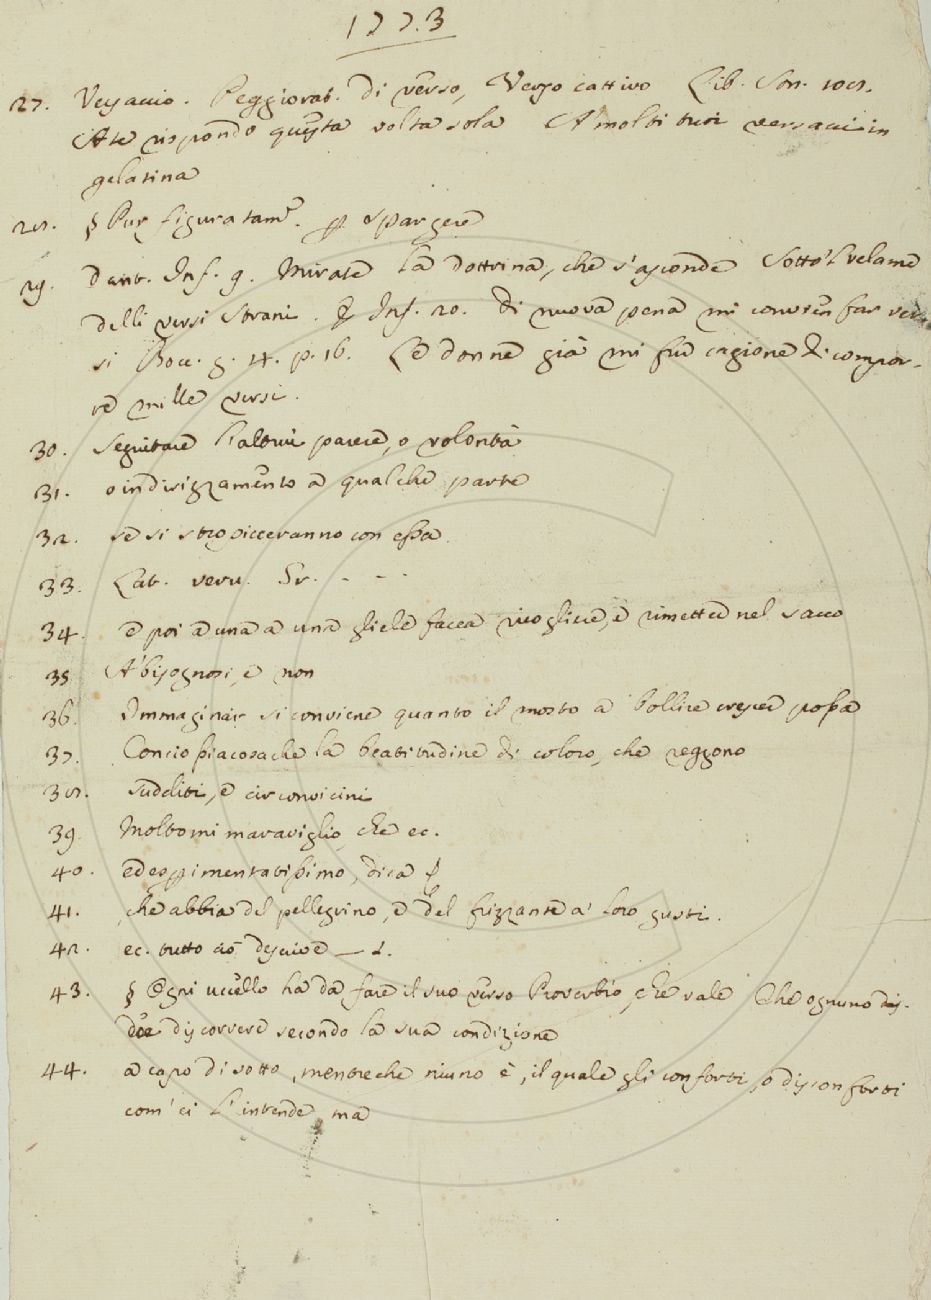 1773
27. Versaccio. Peggiorat. di verso, Verso cattivo Lib. Son. 108.
A te rispondo questa volta sola A' molti tuoi versacci in
gelatina
28. § Pur figuratam. p spargere
29. Dant. Inf. 9. Mirate la dottrina, che s'asconde Sotto 'l velame
delli versi strani. E Inf. 20. Di nuova pena mi convien far ver-
si Bocc. g. 4. p. 16. Le donne già mi fur cagione di compor-
re mille versi.
30. Seguitare l'altrui parere, o volontà
31. o indirizzamento a qualche parte
32. se si stropicceranno con essa
33. Lat. veru. Gr. - - -
34. e poi a una a una gliele facea ricogliere, e rimettere nel sacco
35 A' bisognosi, e non
36. Immaginar si conviene quanto il mosto a bollire crescer possa
37. Conciossiacosache la beatitudine di coloro, che reggono
38. sudditi, e circonvicini
39. Molto mi maraviglio, che ec.
40. ed espimentatissimo, dica
41. che abbia del pellegrino, e del frizzante a' loro gusti.
42. ec. tutto ciò descrive —
43. § Ogni uccello ha da fare il suo verso Proverbio, che vale Che ognuno
dee discorrere secondo la sua condizione
44. a capo di sotto, mentreche niuno è, il quale gli conforti, o disconforti
com' ei l' intende ma